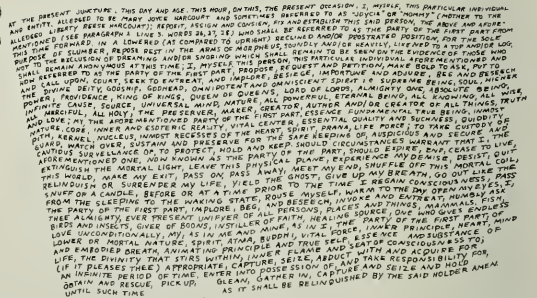 AT THE PRESENT JUNCTURE, THIS DAY AND AGE, THIS HOUR, ON THIS, THE PRESENT OCCASION, I, MYSELF, THIS PARTICULAR INDIVIDUAL
AND ENTITY, ALLEDGED TO BE MARY JOYCE HARCOURT AND SOMETIMES REFERRED TO AS "JOYCE" OR "MOMMY" (MOTHER TO THE
ALLEDGED LIBERTY REESE HARCOURT); DEPOSIT, ASSIGN AND CONSIGN, FIX AND ESTABLISH THIS SAID PERSON, THE ABOVE AND AFORE-
MENTIONED (SEE PARAGRAPH 1 LINE 3, WORDS 26, 27, 28) WHO SHALL BE REFERRED TO AS THE PARTY OF THE FIRST PART FROM
HENCE FORWARD, IN A LOWERED (AS COMPARED TO UPRIGHT) RECLINED AND/OR PROSTRATED POSITION, FOR THE SOLE
PURPOSE OF SLUMBER, REPOSE REST IN THE ARMS OF MORPHEUS, SOUNDLY AND/OR HEAVILY, LIKENED TO A TOP AND/OR LOG,
NOT TO THE EXCLUSION OF DREAMING AND/OR SNORING WHICH SHALL REMAIN TO BE SEEN BY THE EVIDENCE OF THOSE WHO
SHALL REMAIN ANONYMOUS AT THIS TIME; I, MYSELF, THIS PERSON, THIS PARTICULAR INDIVIDUAL AFOREMENTIONED AND
NOW REFERRED TO AS THE PARTY OF THE FIRST PART, PROPOSE, REQUEST AND PETITION, MAKE BOLD TO ASK, PUT TO
AND CALL UPON, COURT, SEEK TO ENTREAT, AND IMPLORE, BESIEGE, IMPORTUNE AND ADJURE, BEG AND BESEECH
THE DIVINE DEITY, GODSHIP, GODHEAD, OMNIPOTENT AND OMNISCIENT SPIRIT I.E. SUPREME BEING, SOUL, HIGHER
POWER, PROVIDENCE, KING OF KINGS, QUEEN OF QUEENS, LORD OF LORDS, ALMIGHTY ONE, ABSOLUTE BEING,
INFINITE CAUSE, SOURCE, UNIVERSAL MIND, NATURE, ALL POWERFUL, ETERNAL BEING, ALL KNOWING, ALL WISE,
ALL MERCIFUL, ALL HOLY; THE PRESERVER, MAKER, CREATOR, AUTHOR AND/OR CREATOR OF ALL THINGS, TRUTH
AND LOVE; MY, THE AFOREMENTIONED PARTY OF THE FIRST PART, ESSENCE FUNDAMENTAL TRUE BEING, INMOST
NATURE, CORE, INNER AND ESOTERIC REALITY, VITAL CENTER, ESSENTIAL QUALITY AND SUCHNESS, QUIDDITY
PITH, KERNEL, NUCLEUS, INMOST RECESSES OF THE HEART, SPIRIT, PRANA, LIFE FORCE; TO TAKE CUSTODY OF
GUARD, WATCH OVER, SUSTAIN AND PRESERVE FOR THE SAKE KEEPING OF, AUSPICIOUS AND SECURE AND
CAUTIOUS SURVEILLANCE OF, TO PROTECT, HOLD AND KEEP. SHOULD CIRCUMSTANCES WARRANT THAT I, THE
AFOREMENTIONED ONE, NOW KNOWN AS THE PARTY OF THE PART, SHOULD EXPIRE, END, CEASE TO LIVE,
EXTINGUISH THE MORTAL LIGHT, LEAVE THIS PHYSICAL PLANE, EXPERIENCE MY DEMISE, DESIST, QUIT
THIS WORLD, MAKE MY EXIT, PASS ON, PASS AWAY, MEET MY END, SHUFFLE OFF THIS MORTAL COIL,
RELINQUISH OR SURRENDER MY LIFE, YIELD THE GHOST, GIVE UP MY BREATH, GO OUT LIKE THE
SNUFF OF A CANDLE, BEFORE OR AT A TIME PRIOR TO THE TIME I REGAIN CONSCIOUSNESS, PASS
FROM THE SLEEPING TO THE WAKING STATE, ROUSE MYSELF, WARM TO THE DAY, OPEN MY EYES, I,
THE PARTY OF THE FIRST PART, IMPLORE, BEG, AND BESEECH, INVOKE AND ENTREAT, HUMBLY ASK
THEE ALMIGHTY, EVER PRESENT UNIFIER OF ALL PERSONS, PLACES AND THINGS, MAMMALS, FISH,
BIRDS AND INSECTS, GIVER OF BOONS, INSTILLER OF FAITH, HEALING SOURCE, ONE WHO GIVES ENDLESS
LOVE UNCONDITIONALLY, MY, AS IN ME AND MINE, AS IN I, THE PARTY OF THE FIRST PART, OF
LOWER OR MORTAL NATURE, SPIRIT, ATMA, BUDDHI, VITAL FORCE, INNER PRINCIPLE, HEART, MIND
AND EMBODIED BREATH, ANIMATING PRINCIPLE AND TRUE SELF, ESSENCE AND SUBSTANCE OF
LIFE, THE DIVINITY THAT STIRS WITHIN, INNER FLAME AND SEAT OF CONSCIOUSNESS TO;
(IF IT PLEASES THEE) APPROPRIATE, CAPTURE, SEIZE, ABDUCT WITH AND ACQUIRE FOR
AN INFINITE PERIOD OF TIME, ENTER INTO POSSESSION OF, AND TAKE RESPONSIBILITY FOR,
OBTAIN AND RESCUE, PICK UP, GLEAN, GATHER IN, CAPTURE AND SEIZE AND HOLD
UNTIL SUCH TIME AS IT SHALL BE RELINQUISHED BY THE SAID HOLDER AMEN.